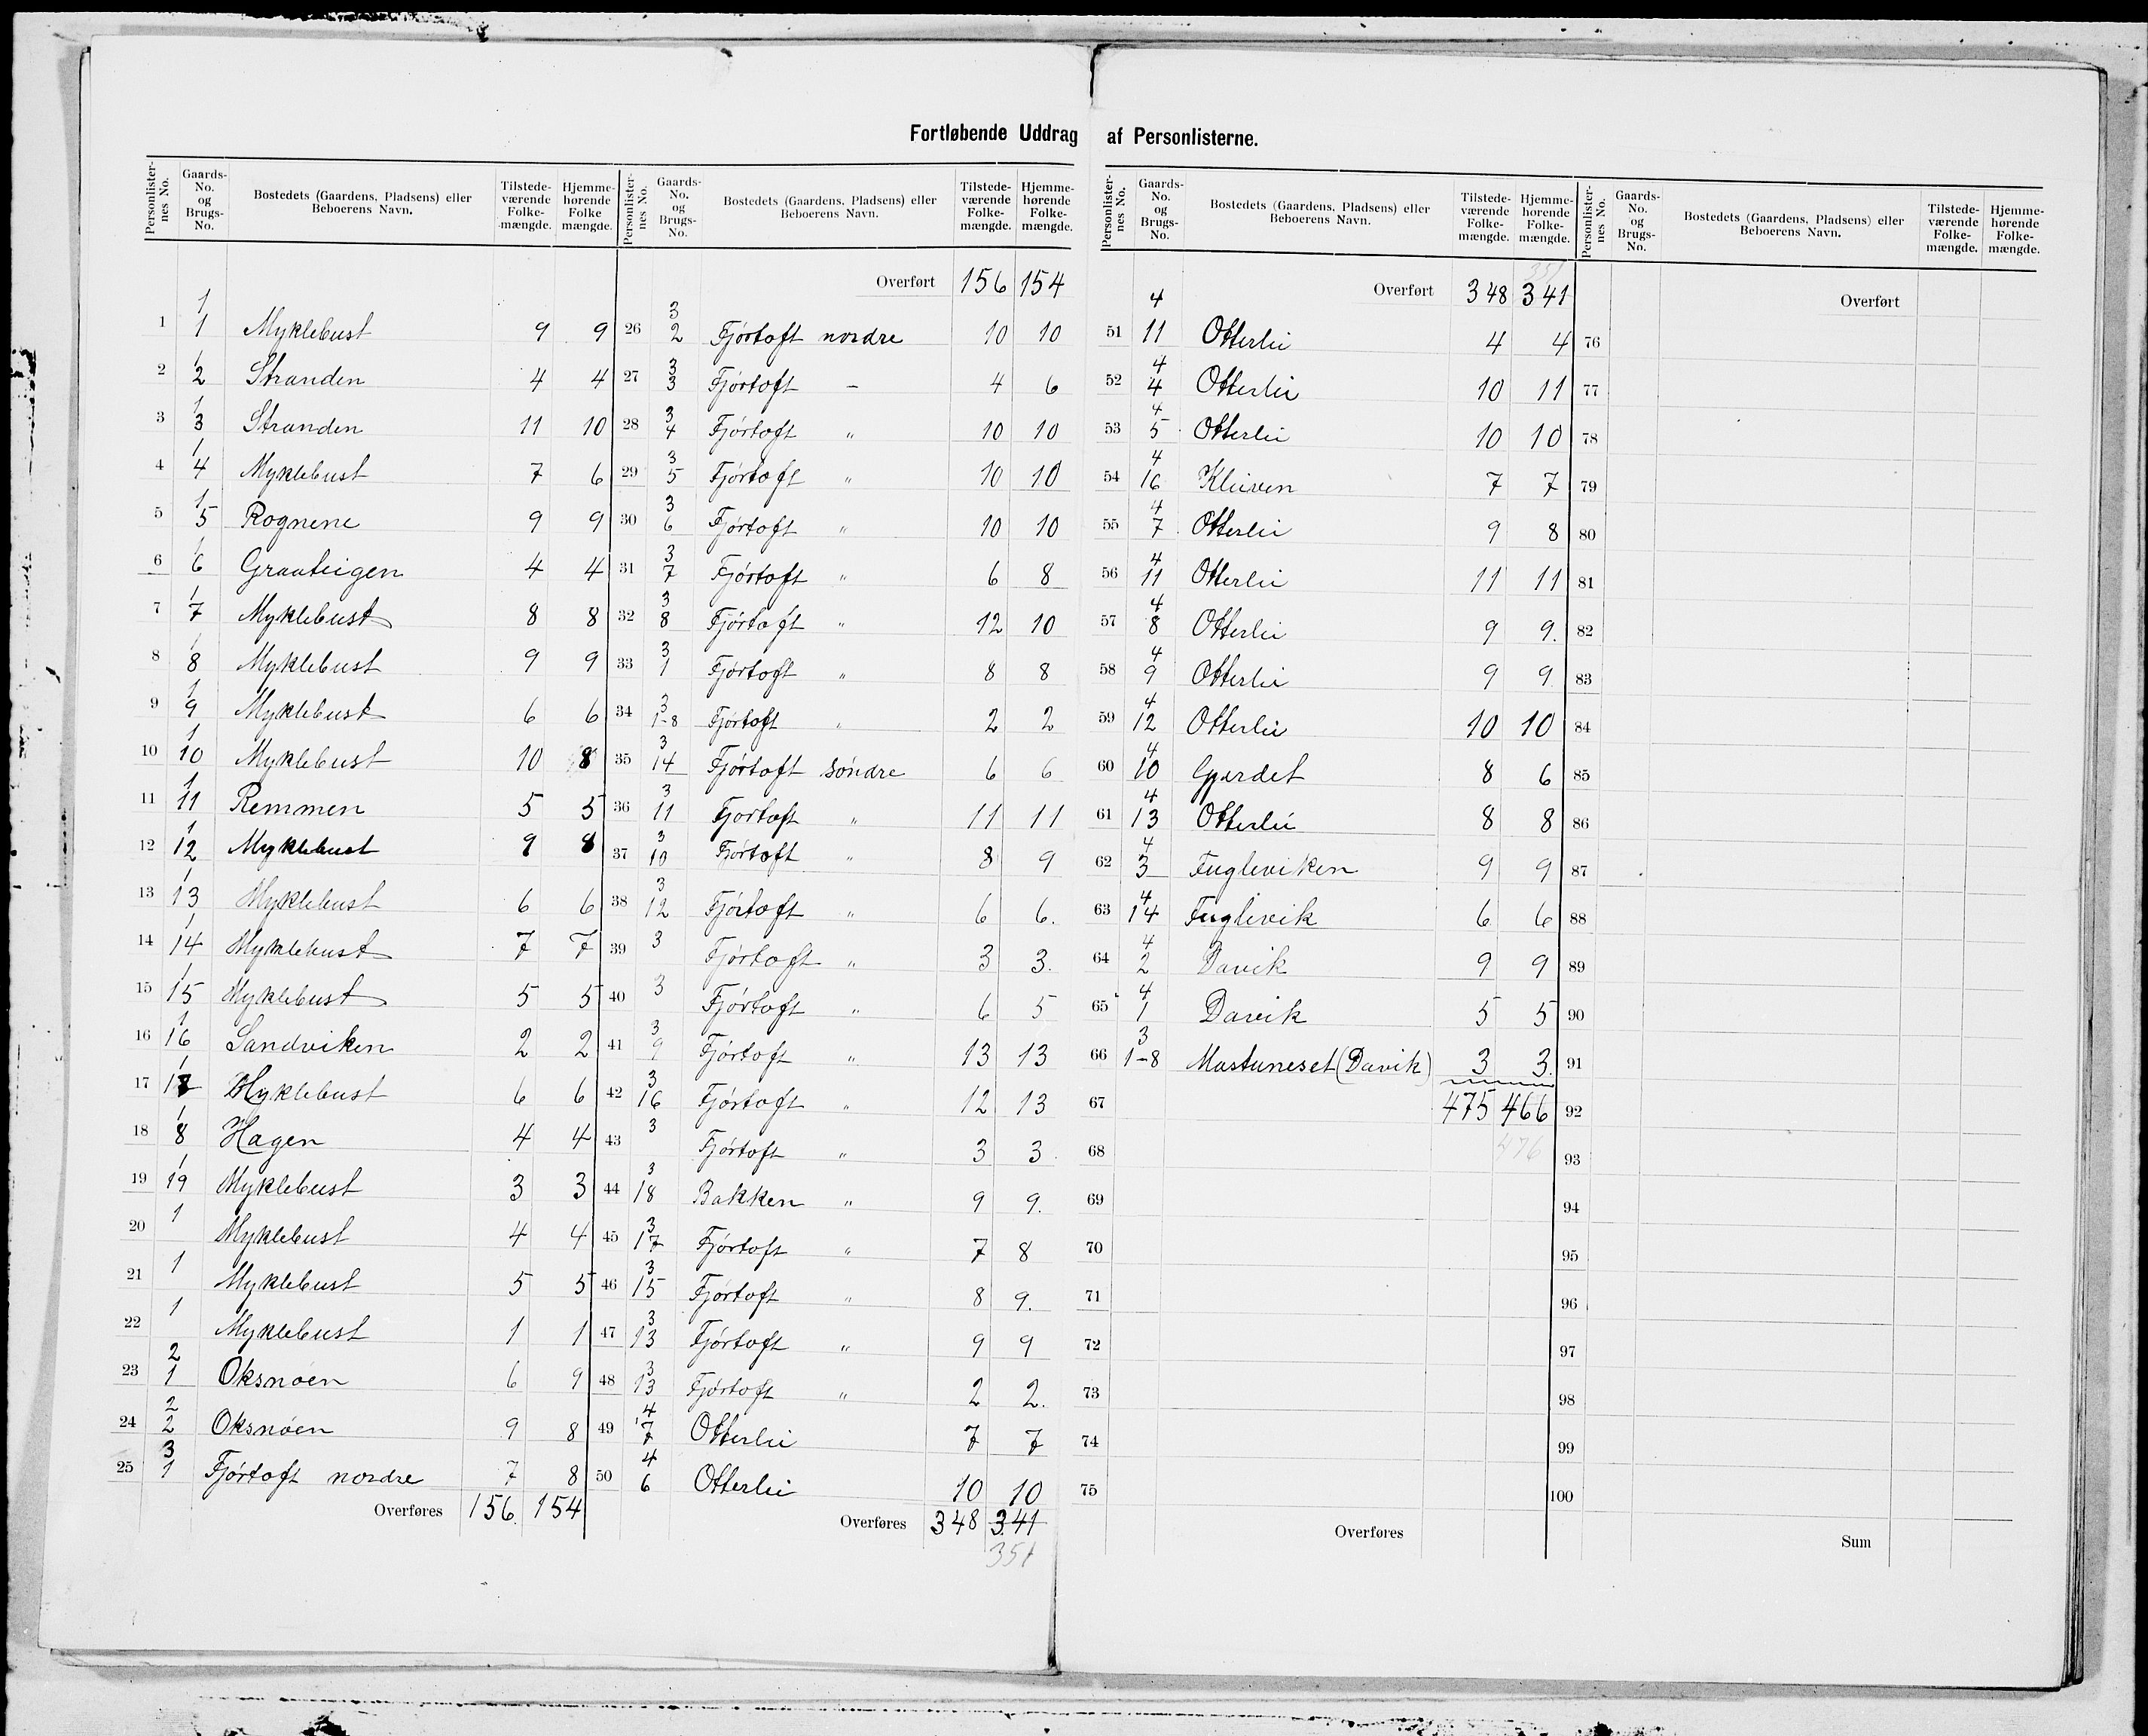 Fortløbende Uddrag af Personlisterne.
Personlister-nes No. | Gaards-No. og Brugs-No. | Bostedets (Gaardens, Pladsens) eller Beboerens Navn. | Tilstede-værende Folke-mængde. | Hjemme-hørende Folke mængde.
1 1/1 Myklebust 9 9
2 1/2 Stranden 4 4
3 1/3 Stranden 11 10
4 1/4 Myklebust 7 6
5 1/5 Rognene 9 9
6 1/6 Grauteigen 4 4
7 1/7 Myklebust 8 8
8 1/8 Myklebust 9 9
9 1/9 Myklebust 6 6
10 1/10 Myklebust 10 8
11 1/11 Remmen 5 5
12 1/12 Myklebust 9 8
13 1/13 Myklebust 6 6
14 1/14 Myklebust 7 7
15 1/15 Myklebust 5 5
16 1/16 Sandviken 2 2
17 1/ Myklebust 6 6
18 1/8 Hagen 4 4
19 1/19 Myklebust 3 3
20 1 Myklebust 4 4
21 1 Myklebust 5 5
22 1 Myklebust 1 1
23 2/1 Oksnøen 6 9
24 2/2 Oksnøen 9 8
25 3/1 Fjørtoft nordre 7 8
Overføres 156 154
Personlister-nes No. | Gaards-No. og Brugs-No. | Bostedets (Gaardens, Pladsens) eller Beboerens Navn. | Tilstede-værende Folke-mængde. | Hjemme-hørende Folke-mængde.
Overført 156 154
26 3/2 Fjørtoft nordre 10 10
27 3/3 Fjørtoft – 4 6
28 3/4 Fjørtoft " 10 10
29 3/5 Fjørtoft " 10 10
30 3/6 Fjørtoft " 10 10
31 3/7 Fjørtoft " 6 8
32 3/8 Fjørtoft " 12 10
33 3/1 Fjørtoft " 8 8
34 3/1-8 Fjørtoft " 2 2
35 3/14 Fjørtoft søndre 6 6
36 3/11 Fjørtoft " 11 11
37 3/10 Fjørtoft " 8 9
38 3/12 Fjørtoft " 6 6.
39 3 Fjørtoft " 3 3.
40 3 Fjørtoft " 6 5
41 3/9 Fjørtoft " 13 13
42 3/16 Fjørtoft " 12 13
43 3 Fjørtoft " 3 3
44 3/18 Bakken " 9 9.
45 3/17 Fjørtoft " 7 8
46 3/15 Fjørtoft " 8 9.
47 3/13 Fjørtoft " 9 9
48 3/13 Fjørtoft " 2 2.
49 4/7 Otterlei 7 7
50 4/6 Otterlei 10 10
Overføres 348 341
351
Personlister-nes No. | Gaards-No. og Brugs-No. | Bostedets (Gaardens, Pladsens) eller Beboerens Navn. | Tilstede-værende Folke-mængde. | Hjemme-hørende Folke-mængde.
351
Overført 348 341
51 4/11 Otterlei 4 4
52 4/4 Otterlei 10 11
53 4/5 Otterlei 10 10
54 4/16 Kleiven 7 7
55 4/7 Otterlei 9 8
56 4/11 Otterlei 11 11
57 4/8 Otterlei 9 9.
58 4/9 Otterlei 9 9
59 4/12 Otterlei 10 10
60 4/10 Gjerdet 8 6
61 4/13 Otterlei 8 8
62 4/3 Fugleviken 9 9
63 4/14 Fuglevik 6 6
64 4/2 Davik 9 9
65 4/1 Davik 5 5
66 3/1-8 Mastuneset (Davik) 3 3.
67 475 466
68 476
69
70
71
72
73
74
75
Overføres
Personlister-nes No. | Gaards-No. og Brugs-No. | Bostedets (Gaardens, Pladsens) eller Beboerens Navn. | Tilstede-værende Folke-mængde. | Hjemme-hørende Folke-mængde.
Overført
76
77
78
79
80
81
82
83
84
85
86
87
88
89
90
91
92
93
94
95
96
97
98
99
100
Sum